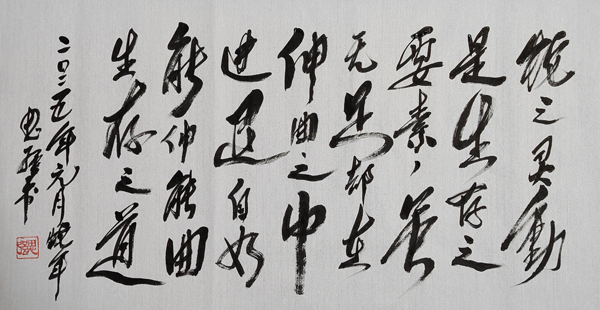 蛇之灵動
是生存之
要素，虽
无足却在
伸曲之中
进退自如
能伸能曲
生存之道
二〇二五年元月蛇年
书